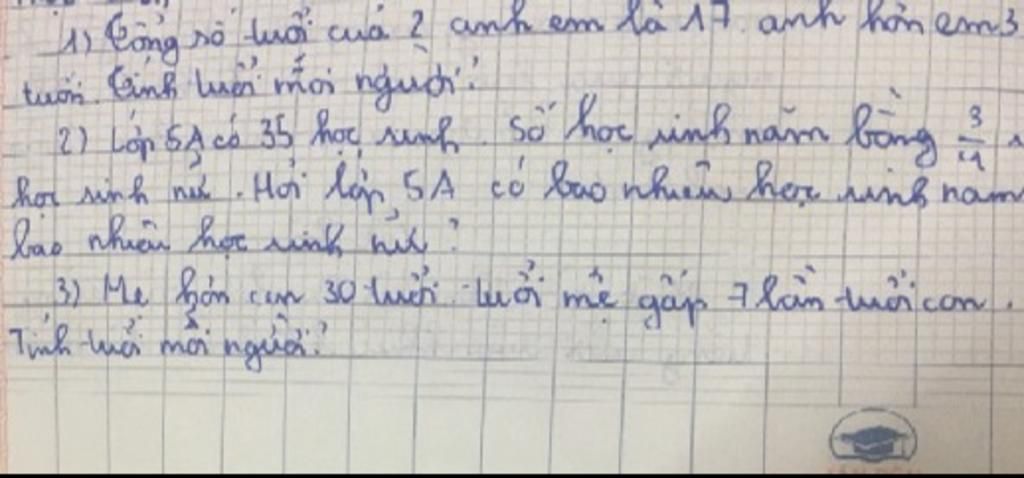 1) Tổng số tuổi của 2 anh em là 17. anh hơn em 3
tuổi. Tính tuổi mỗi người?
2) Lớp 5A có 35 học sinh. Số học sinh nam bằng 3/4
học sinh nữ. Hỏi lớp 5A có bao nhiêu học sinh nam
bao nhiêu học sinh nữ?
3) Mẹ hơn con 30 tuổi. tuổi mẹ gấp 7 lần tuổi con.
Tính tuổi mỗi người?